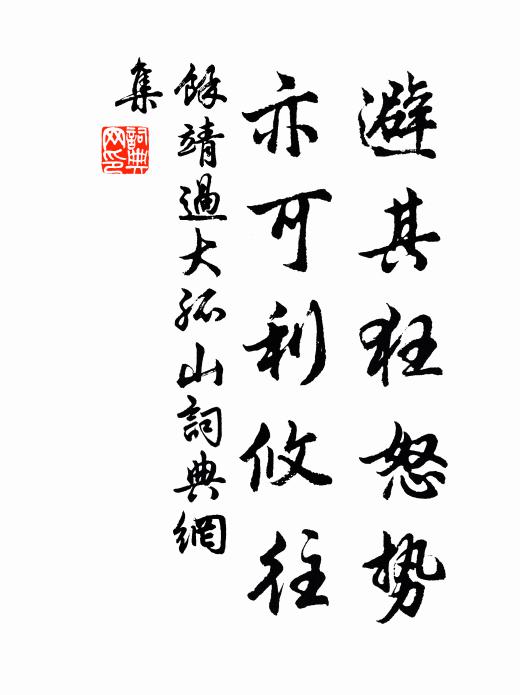 避其狂怒势
亦可利攸往
餘靖過大孤山詞典網
集
詞典
网印